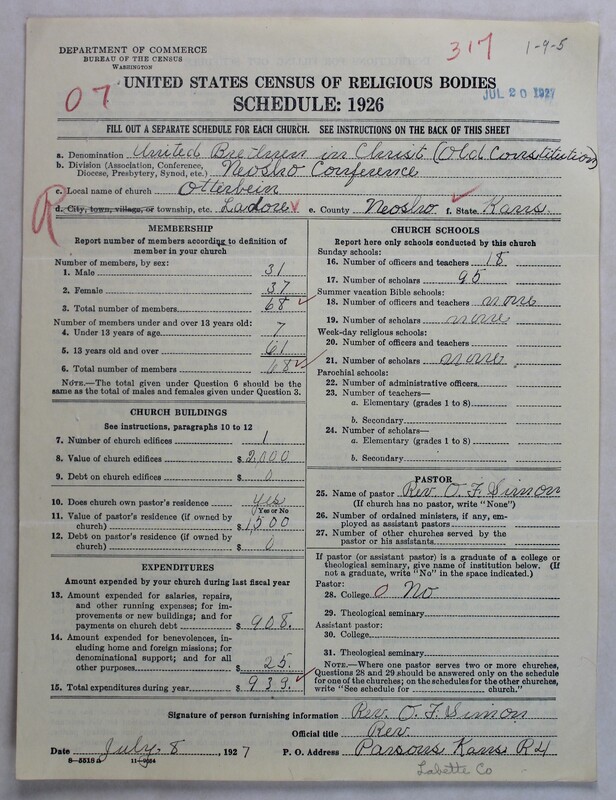 317
1-9-5
DEPARTMENT OF COMMERCE
BUREAU OF THE CENSUS
WASHINGTON
07
UNITED STATES CENSUS OF RELIGIOUS BODIES
JUL 20 1927
SCHEDULE: 1926
FILL OUT A SEPARATE SCHEDULE FOR EACH CHURCH. SEE INSTRUCTIONS ON THE BACK OF THIS SHEET
a. Denomination United Brethren in Christ (Old Constitution)
b. Division (Association, Conference, Diocese, Presbytery, Synod, etc.) Neosho Conference
c. Local name of church Otterbein
R
d. City, town, village, or township, etc. Ladore e. County Neosho f. State Kans
MEMBERSHIP
Report number of members according to definition of
member in your church
Number of members, by sex:
1. Male 31
2. Female 37
3. Total number of members 68
Number of members under and over 13 years old:
4. Under 13 years of age 7
5. 13 years old and over 61
6. Total number of members 68
NOTE.—The total given under Question 6 should be
same as the total of males and females given under Question 3.
CHURCH BUILDINGS
See instructions, paragraphs 10 to 12
7. Number of church edifices 1
8. Value of church edifices $ 2,000
9. Debt on church edifices $ 0
10. Does church own pastor's residence yes
Yes or No
11. Value of pastor's residence (if owned by
church) $ 1,500
12. Debt on pastor's residence (if owned by
church) $ 0
EXPENDITURES
Amount expended by your church during last fiscal year
13. Amount expended for salaries, repairs,
and other running expenses; for im-
provements or new buildings; and for
payments on church debt $ 908.
14. Amount expended for benevolences, in-
cluding home and foreign missions; for
denominational support; and for all
other purposes $ 25.
15. Total expenditures during year $ 939.
CHURCH SCHOOLS
Report here only schools conducted by this church
Sunday schools:
16. Number of officers and teachers 18
17. Number of scholars 95
Summer vacation Bible schools:
18. Number of officers and teachers none
19. Number of scholars none
Week-day religious schools:
20. Number of officers and teachers
21. Number of scholars none
Parochial schools:
22. Number of administrative officers
23. Number of teachers—
a. Elementary (grades 1 to 8)
b. Secondary
24. Number of scholars—
a. Elementary (grades 1 to 8)
b. Secondary
PASTOR
25. Name of pastor Rev. O. F. Simon
(If church has no pastor, write "None")
26. Number of ordained ministers, if any, em-
ployed as assistant pastors
27. Number of other churches served by the
pastor or his assistants
If pastor (or assistant pastor) is a graduate of a college or
theological seminary, give name of institution below. (If
not a graduate, write "No" in the space indicated.)
Pastor:
28. College 0 No
29. Theological seminary
Assistant pastor:
30. College
31. Theological seminary
NOTE.—Where one pastor serves two or more churches,
Questions 28 and 29 should be answered only on the schedule
for one of the churches; on the schedules for the other churches,
write "See schedule for church."
Signature of person furnishing information Rev. O. F. Simon
Official title Rev.
Date July 8, 1927 P. O. Address Parsons Kans R4
8—5518 a 11—9024
Labette Co